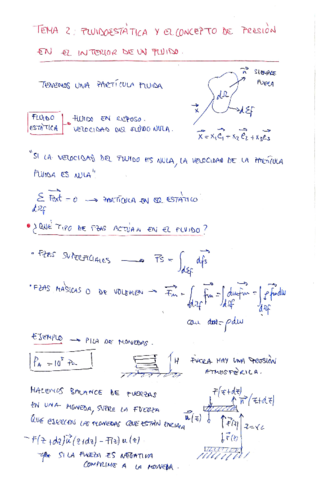 TEMA 2. FLUIDOESTÁTICA Y EL CONCEPTO DE PRESIÓN
EN EL INTERIOR DE UN FLUIDO.
TENEMOS UNA PARTÍCULA FLUIDA
n SIEMPRE
FUERA
dΩ
dΣf
x
FLUIDO
ESTÁTICA
FLUIDO EN REPOSO.
VELOCIDAD DEL FLUIDO NULA.
x = x₁e₁ + x₂e₂ + x₃e₃
"SI LA VELOCIDAD DEL FLUIDO ES NULA, LA VELOCIDAD DE LA PARTÍCULA
FLUIDA ES NULA"
Σ Fext = 0 → PARTÍCULA EN EQ. ESTÁTICO
¿QUÉ TIPO DE FZAS ACTÚAN EN EL FLUIDO?
• FZAS SUPERFICIALES → Fs = ∫ dfs
• FZAS MÁSICAS O DE VOLUMEN → Fm = ∫ fm = ∫ dm fm = ∫ ρ fm dω
con dm = ρdω
EJEMPLO → PILA DE MONEDAS.
Pa = 10⁵ Pa
H
FUERA HAY UNA PRESIÓN
ATMOSFÉRICA.
HACEMOS BALANCE DE FUERZAS
EN UNA MONEDA, SUPRE LA FUERZA
QUE EJERCEN LAS MONEDAS QUE ESTÁN ENCIMA
F(z+dz)
n(z+dz)
n(z)
F(z)
- F(z+dz) n(z+dz) - F(z) n(z)
SI LA FUERZA ES NEGATIVA
COMPRIME A LA MONEDA.